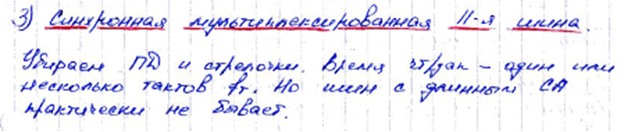 3) Синхронная мультиплексированная II-я шина.
Убираем ПД и стрелочки. Время чт/зап – один или
несколько тактов fт. Но шин с длинным СА
практически не бывает.